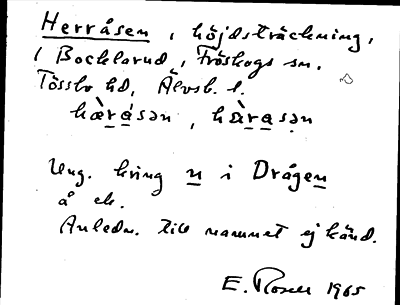 Herråsen, höjdsträckning,
i Bocklarud, Fröskogs sn.
Tössbo hd, Älvsb. l.
hæ̀rásən, hàrasən
Ung. kring n i Drågen
å ek.
Anledn. till namnet ej känd.
E. Rosell 1965